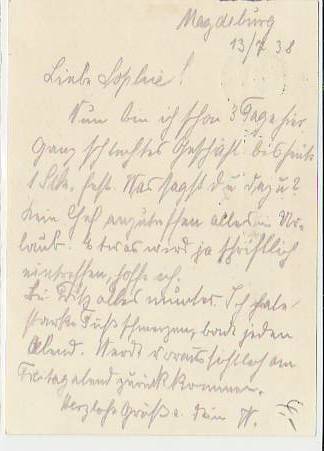 Magdeburg
13/7 38
Liebe Sophie!
Nun bin ich schon 3 Tage hier
ganz schlechtes Geschäft bis heute
1 Stk. fehlt. Was sagst du dazu?
Kein Chef anzutreffen alles in Ur-
laub. Etwas wird ja schriftlich
eintreffen, hoffe ich.
Bei Fritz alles munter. Ich habe
starke Fußschmerzen, bade jeden
Abend. Werde voraussichtlich am
Freitag abend zurück kommen.
Herzliche Grüße Dein